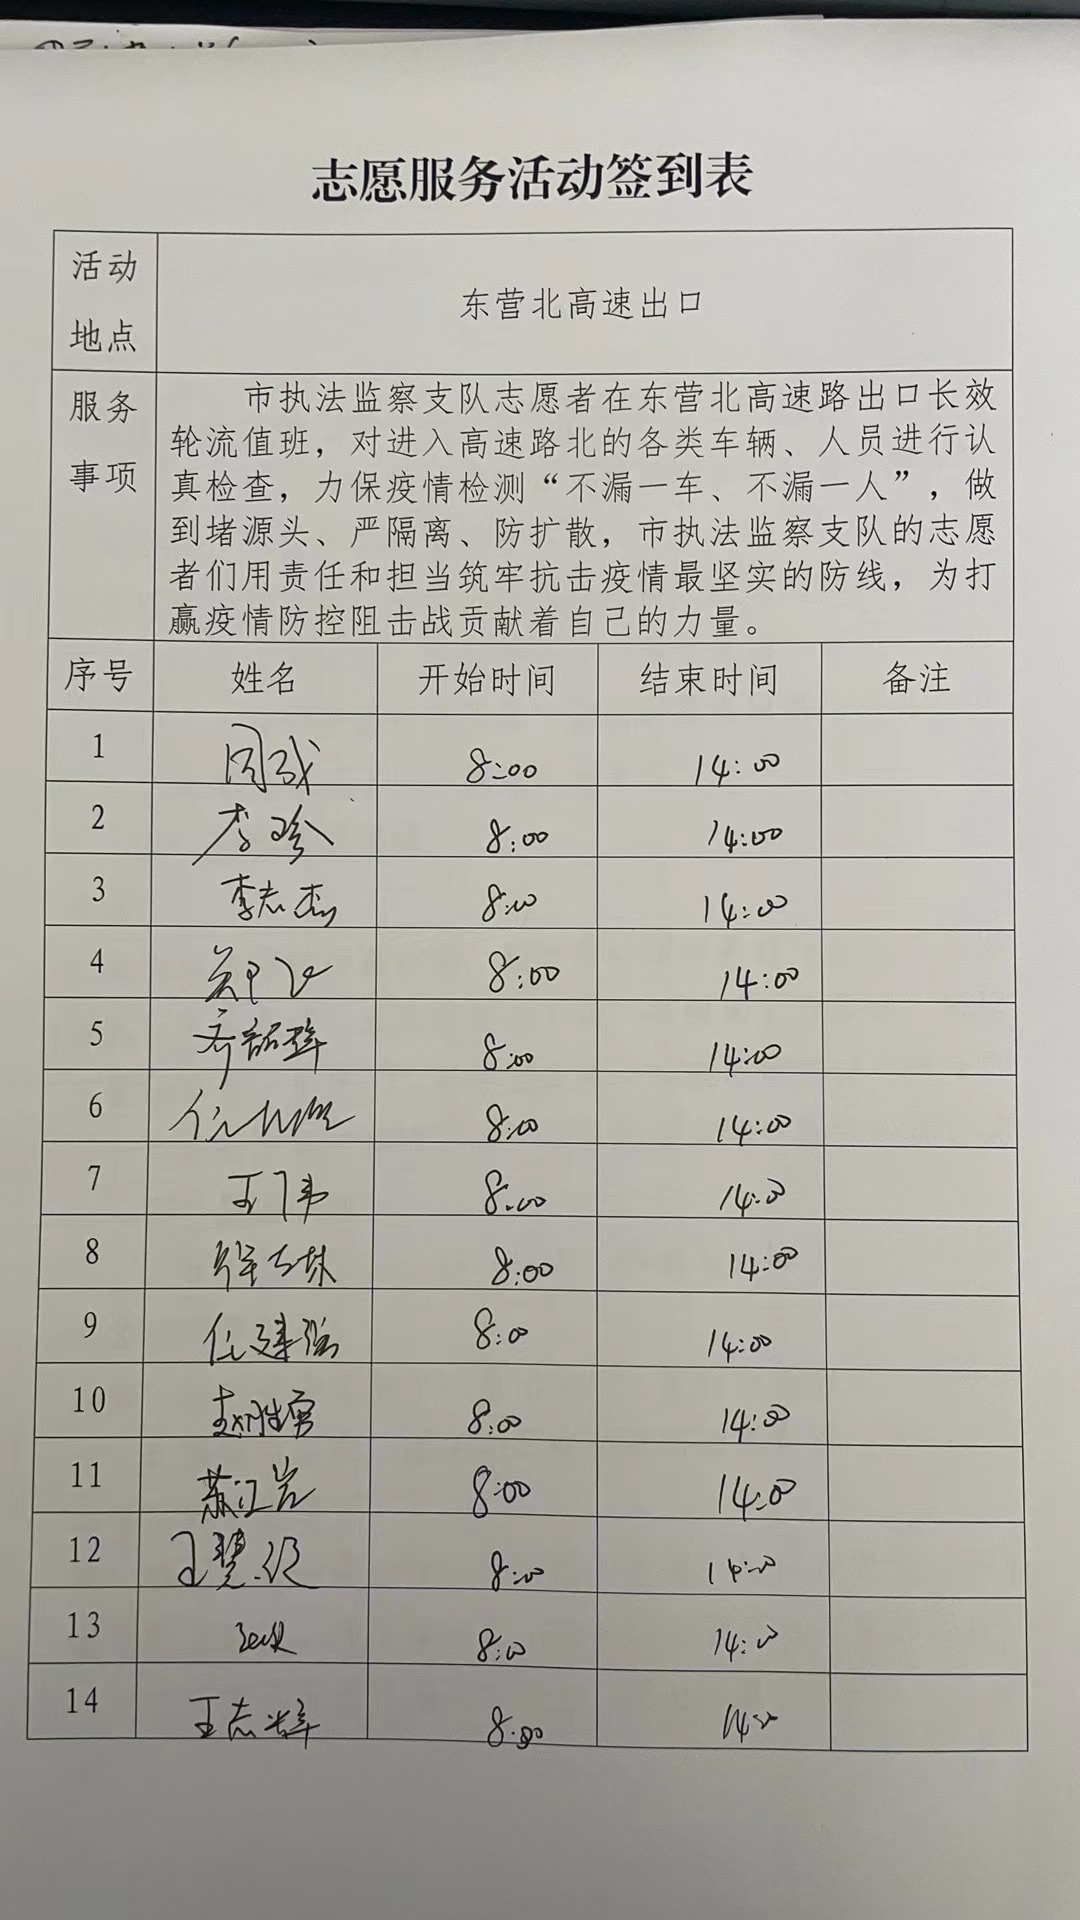 志愿服务活动签到表
活动
地点
东营北高速出口
服务
事项
市执法监察支队志愿者在东营北高速路出口长效
轮流值班，对进入高速路北的各类车辆、人员进行认
真检查，力保疫情检测“不漏一车、不漏一人”，做
到堵源头、严隔离、防扩散，市执法监察支队的志愿
者们用责任和担当筑牢抗击疫情最坚实的防线，为打
赢疫情防控阻击战贡献着自己的力量。
序号 姓名 开始时间 结束时间 备注
1 8:00 14:00
2 李珍 8:00 14:00
3 李志杰 8:00 14:00
4 郑飞 8:00 14:00
5 8:00 14:00
6 8:00 14:00
7 王 8:00 14:00
8 8:00 14:00
9 任建强 8:00 14:00
10 赵胜勇 8:00 14:00
11 苏江岩 8:00 14:00
12 王慧 8:00 14:00
13 8:00 14:00
14 王志辉 8:00 14:00